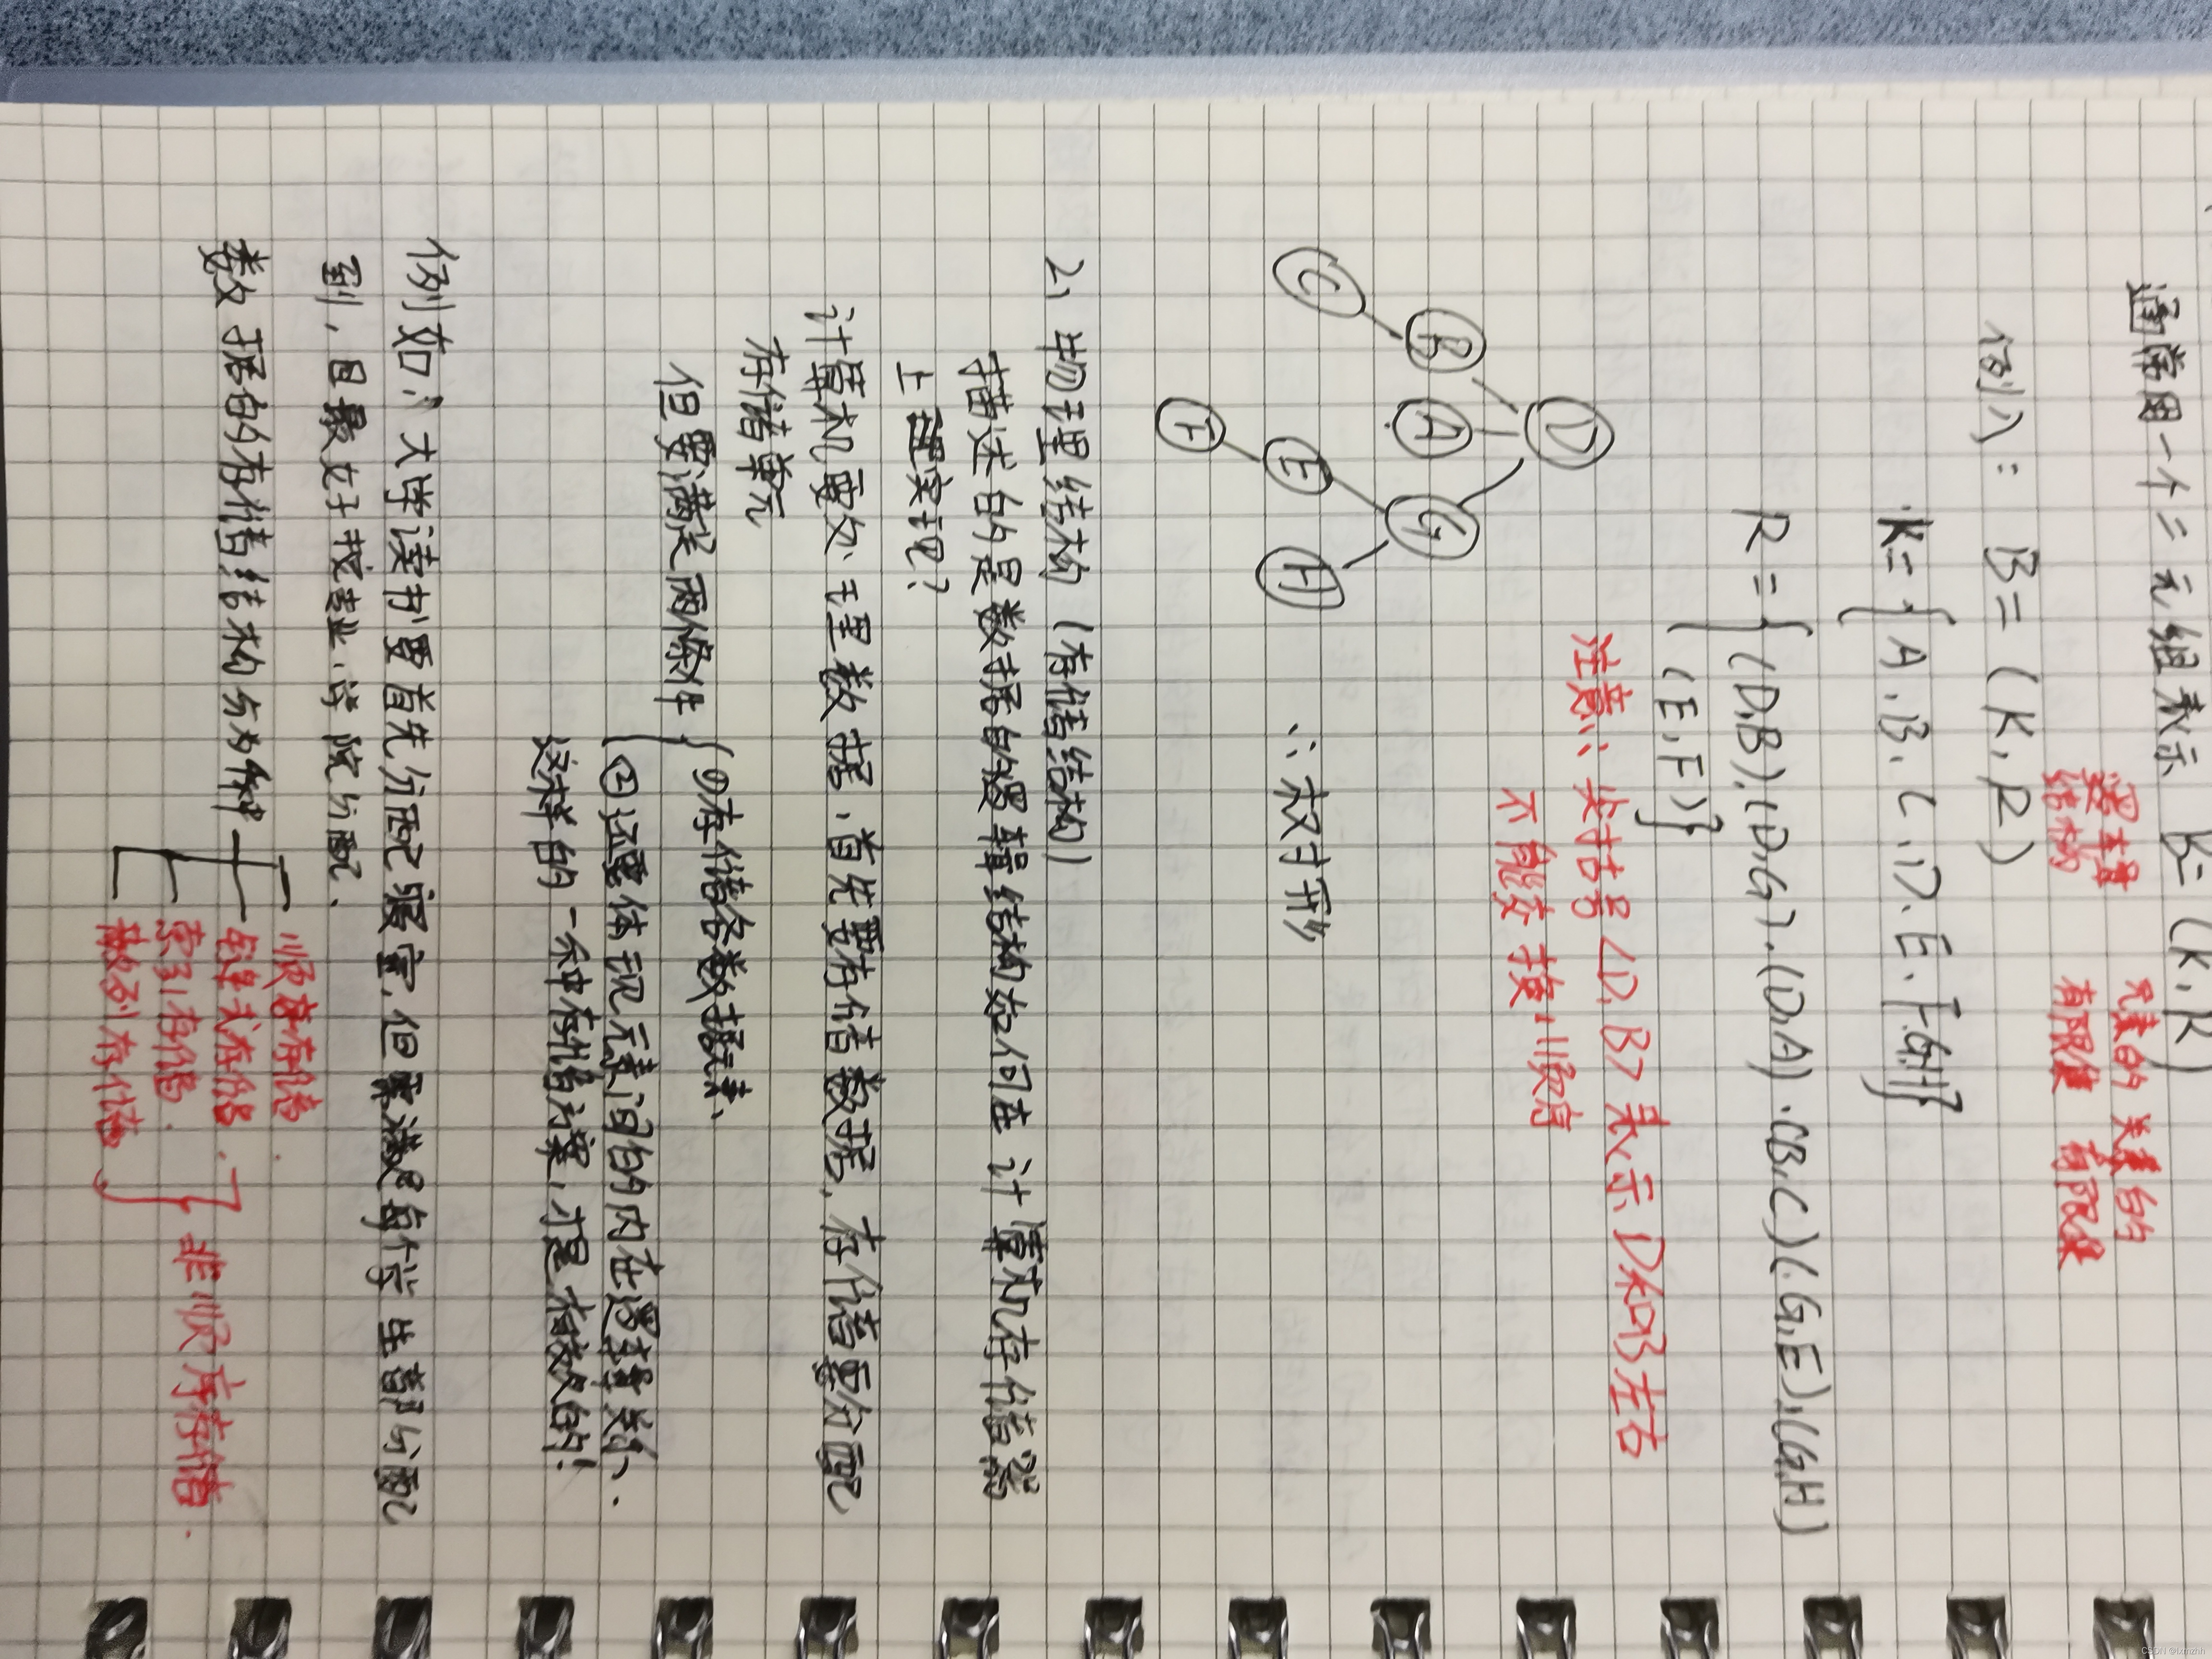 通常用一个二元组表示 B=(K,R)
逻辑 元素的 关系的
结构 有限集 有限集
例1: B=(K,R)
K={A,B,C,D,E,F,G,H}
R={(D,B),(D,G),(D,A),(B,C)(,G,E),(G,H)
(E,F)}
注意: 尖括号<D,B>表示D和B左右
不能交换顺序
D
B A G
C E H
F
∴树形
2、物理结构(存储结构)
描述的是数据的逻辑结构如何在计算机存储器
上实现?
计算机要处理数据,首先要存储数据,存储要分配
存储单元
但要满足两条件
①存储各数据元素、
②还要体现元素间的内在逻辑关系、
这样的一种存储方案,才是有效的!
例如:大学读书要首先分配寝室,但要满足每个学生都分配
到,且最好按专业、学院分配.
数据的存储结构分为四种
顺序存储.
链式存储.
索引存储.
散列存储
非顺序存储.
CSDN @txmzhn